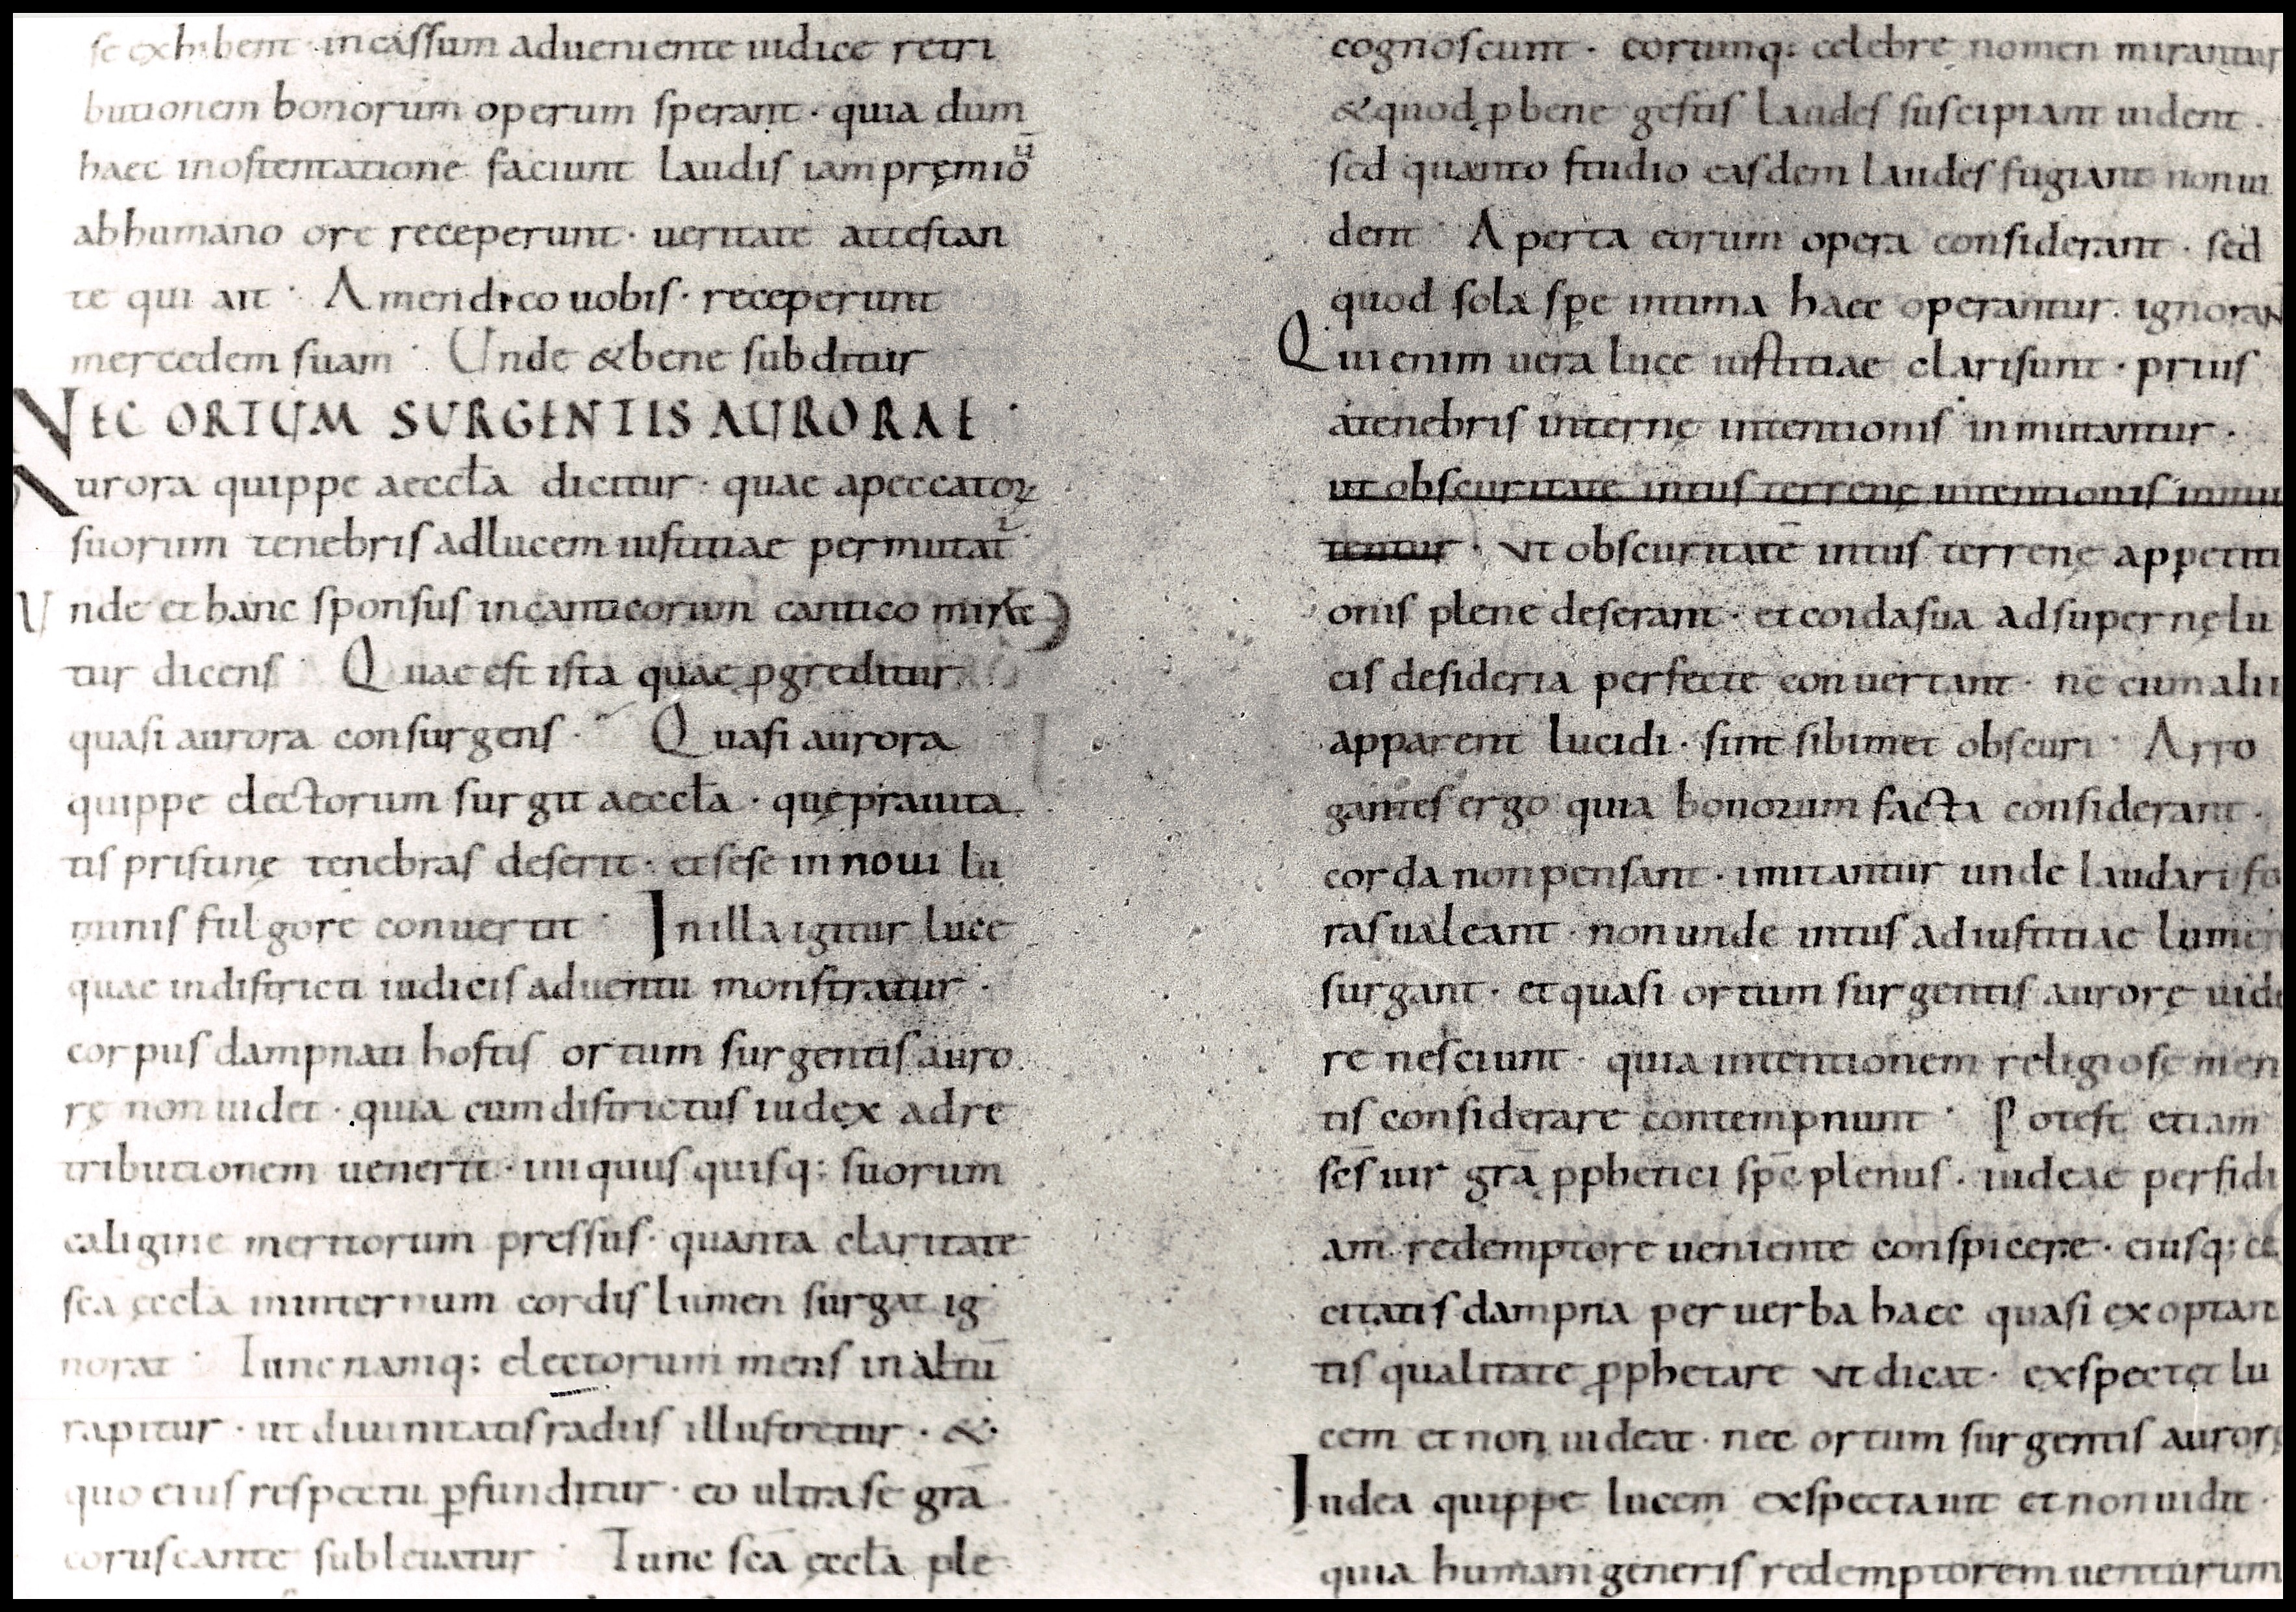 se exhibent · incassum adueniente iudice retri
butionem bonorum operum sperant · quia dum
haec inostentatione faciunt laudis iam pręmiō
abhumano ore receperunt · ueritate attestan
te qui ait · Amendico uobis · receperunt
mercedem suam · Unde &bene subditur
NEC ORTUM SURGENTIS AURORAE ·
Aurora quippe aeccła dicitur · quae apeccatoꝝ
suorum tenebris adlucem iustitiae permutat᷑
Vnde et hanc sponsus incanticorum cantico mira
tur dicens · Quae est ista quae ꝓgreditur
quasi aurora consurgens · Quasi aurora
quippe electorum surgit aeccła · quę prauita
tis pristinę tenebras deserit · et sese in noui lu
minis fulgore conuertit · In illa igitur luce
quae indistricti iudicis aduentu monstratur ·
corpus dampnati hostis ortum surgentis auro
rę non uidet · quia cum districtus iudex adre
tributionem uenerit · iniquus quisq; suorum
caligine meritorum pressus · quanta claritate
sca ęccła ininternum cordis lumen surgat ig
norat · Tunc namq; electorum mens inaltū
rapitur · ut diuinitatis radiis illustretur · &
quo eius respectu ꝑfunditur · eo ultra se grā
coruscante subleuatur · Tunc scā ęccła ple
cognoscunt · eorumq; celebre nomen mirantur
&quod ꝓ bene gestis laudes suscipiant uident ·
sed quanto studio easdem laudes fugiant non ui
dent · Aperta eorum opera considerant · sed
quod sola spe intima haec operantur · ignorant
Qui enim uera luce iustitiae clari sunt · prius
atenebris internę intentionis inmutantur ·
ut obscuritate intus terrenę intentionis inmu
tentur · Vt obscuritatē intus terrenę appetiti
onis plene deserant · et corda sua ad supernę lu
cis desideria perfecte conuertant · ne cum alii
apparent lucidi · sint sibimet obscuri · Arro
gantes ergo quia bonorum facta considerant ·
corda non pensant · imitantur unde laudari fo
ras ualeant · non unde intus adiustitiae lumen
surgant · et quasi ortum surgentis aurorę uide
re nesciunt · quia intentionem religiosę men
tis considerare contempnunt · Potest etiam
scs uir grā ꝓphetici spē plenus · iudeae perfidi
am redemptore ueniente conspicere · eiusq; ce
citatis dampna per uerba haec quasi exoptan
tis qualitate ꝓphetare Vt dicat · exspectet lu
cem et non uideat · nec ortum surgentis aurorę
Iudea quippe lucem exspectauit et non uidit ·
quia humani generis redemptorem uenturum